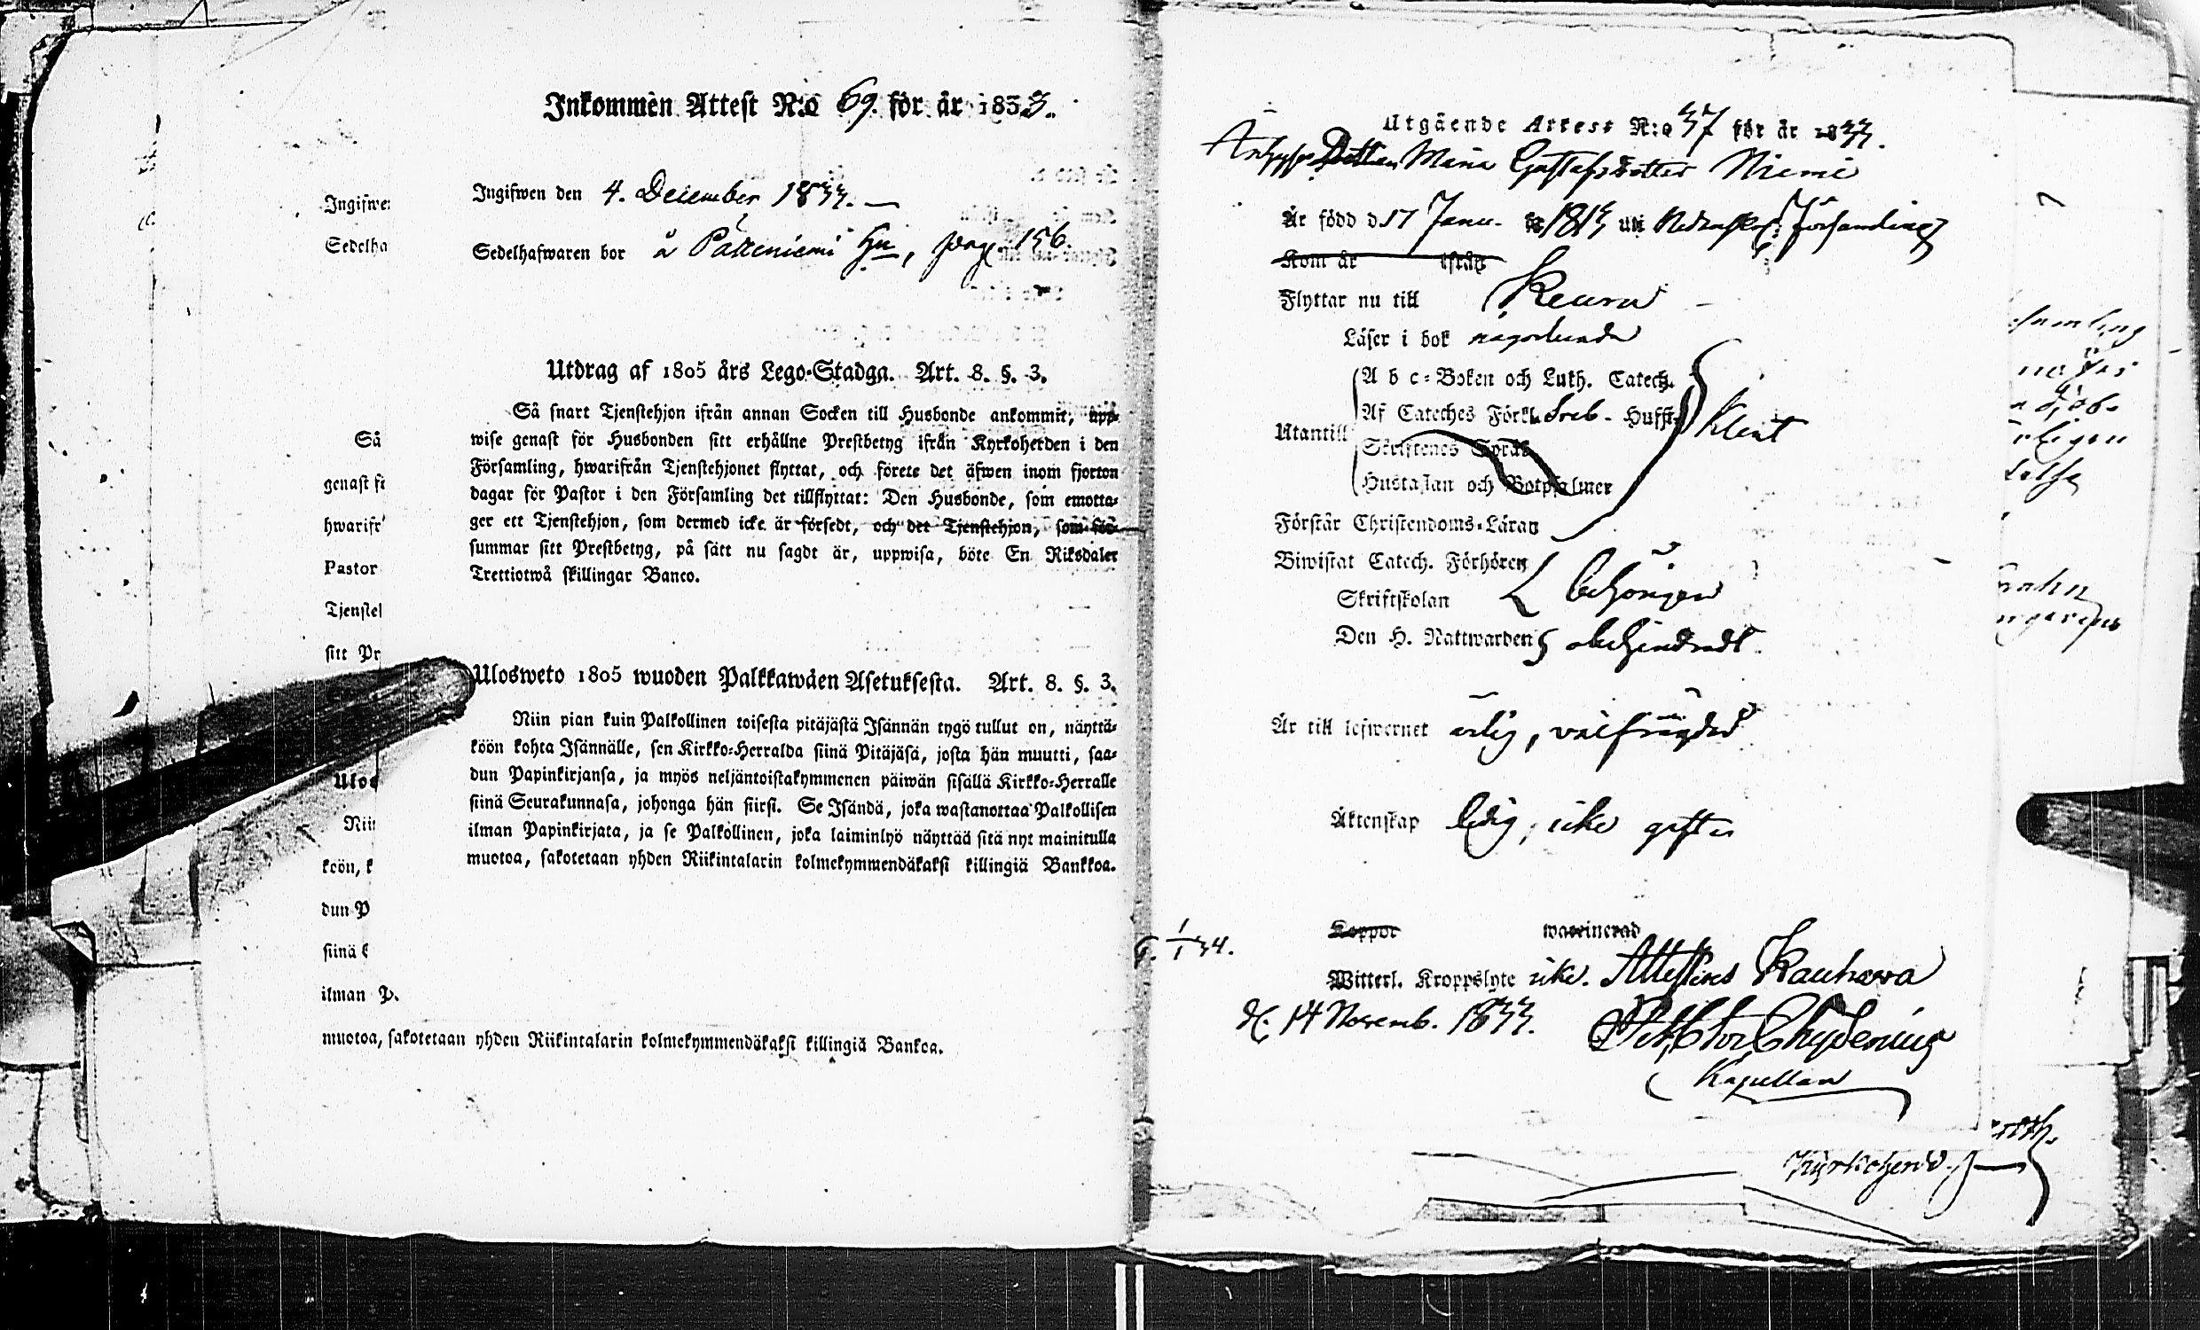 Inkommen Attest N:o 69. för år 1833.
Ingifwen den 4. December 1833.
Sedelhafwaren bor å Päkeniemi Hn, pag. 156.
Utdrag af 1805 års Lego-Stadga. Art. 8. §. 3.
Så snart Tjenstehjon ifrån annan Socken till Husbonde ankommit, upp-
wise genast för Husbonden sitt erhållne Prestbetyg ifrån Kyrkoherden i den
Församling, hwarifrån Tjenstehjonet flyttat, och förete det äfwen inom fjorton
dagar för Pastor i den Församling det tillflyttat: Den Husbonde, som emotta-
ger ett Tjenstehjon, som dermed icke är försedt, och det Tjenstehjon, som för-
summar sitt Prestbetyg, på sätt nu sagdt är, uppwisa, böte En Riksdaler
Trettiotwå skillingar Banco.
Ulosweto 1805 wuoden Palkkawäen Asetuksesta. Art. 8. §. 3.
Niin pian kuin Palkollinen toisesta pitäjästä Isännän tygö tullut on, näyttä-
köön kohta Isännälle, sen Kirkko-Herralda siinä Pitäjäsä, josta hän muutti, saa-
dun Papinkirjansa, ja myös neljäntoistakymmenen päiwän sisällä Kirkko-Herralle
siinä Seurakunnasa, johonga hän siirsi. Se Isändä, joka wastanottaa Palkollisen
ilman Papinkirjata, ja se Palkollinen, joka laiminlyö näyttää sitä nyt mainitulla
muotoa, sakotetaan yhden Riikintalarin kolmekymmendäkaksi killingiä Bankkoa.
Ingifwe
Sedelha
Så
genast fö
hwarifr
Pastor
Tjenstel
sitt Pr
Ulos
Niin
köön, k
dun P
siinä
ilman P
muotoa, sakotetaan yhden Riikintalarin kolmekymmendäkaksi killingiä Bankoa.
Utgående Attest N:o 37 för år 1833.
Maria Gustafsdotter Niemi
Är född d 17 Janu. 1813 uti Församling
Kom år ifrån
Flyttar nu till Keuru
Läser i bok någorlunda
Utantill
A b c-Boken och Luth. Catech.
Af Cateches Förkl. Sveb. Husst. Klent
Skriftenes Språk
Hustaflan och Botpsalmer
Förstår Christendoms-Läran
Biwistat Catech. Förhören
Skriftskolan behörigen
Den H. Nattwarden obehindradt
Är till lefwernet ärlig, välfrägdad
Äktenskap ledig, icke gifter
Koppor waccinerad
Witterl. Kroppslyte icke. Attesteras Kauhava
d. 14 Novemb. 1833.
Chydenius
Kapellan
Kyrkoherd.